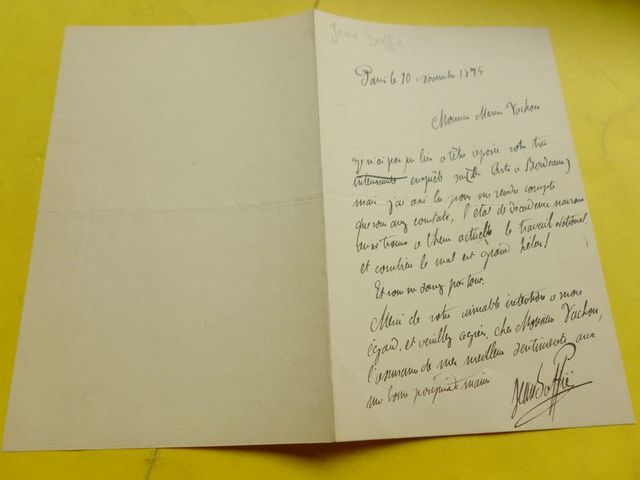 Jean Baffié
Paris le 10 novembre 1895
Monsieur Marius Vachon
je n'ai pas pu lire à tête reposée votre très
intéressante enquête sur les Arts à Bordeaux,
mais j'ai assez lu pour me rendre compte
que vous avez constaté, l'état de décadence
à l'heure actuelle le travail national
et combien le mal est grand hélas!
Et nous ne sommes pas tous.
Merci de votre aimable intention à mon
égard, et veuillez agréer, cher Monsieur Vachon,
l'assurance de mes meilleurs sentiments avec
une bonne poignée de main
Jean Baffié